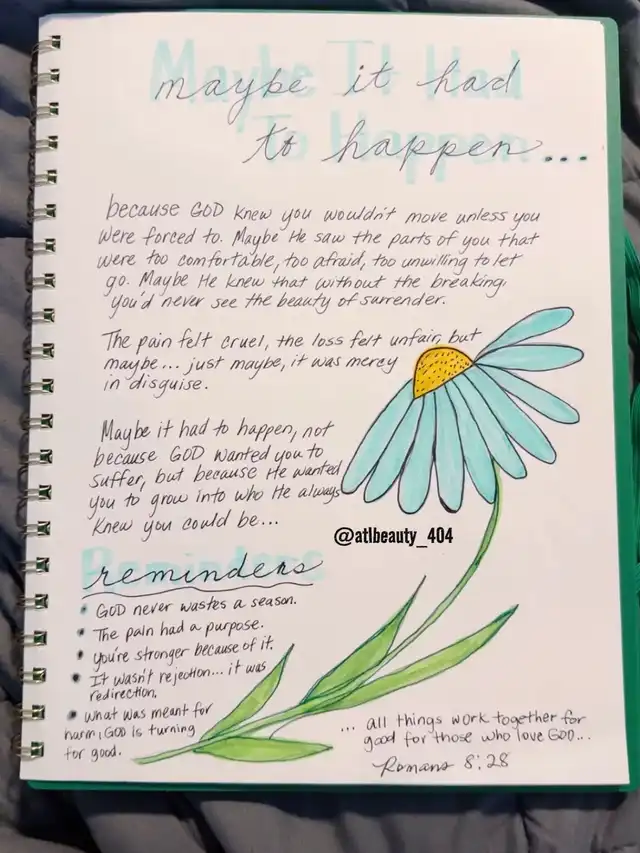 Maybe It Had
To Happen
maybe it had
to happen...
because GOD knew you wouldn't move unless you
were forced to. Maybe He saw the parts of you that
were too comfortable, too afraid, too unwilling to let
go. Maybe He knew that without the breaking,
you'd never see the beauty of surrender.
The pain felt cruel, the loss felt unfair, but
maybe... just maybe, it was mercy
in disguise.
Maybe it had to happen, not
because GOD wanted you to
suffer, but because He wanted
you to grow into who He always
knew you could be...
@atlbeauty_404
Reminders
reminders
• GOD never wastes a season.
• The pain had a purpose.
• you're stronger because of it.
• It wasn't rejection... it was
redirection.
• what was meant for
harm, GOD is turning
for good.
... all things work together for
good for those who love GOD...
Romans 8:28